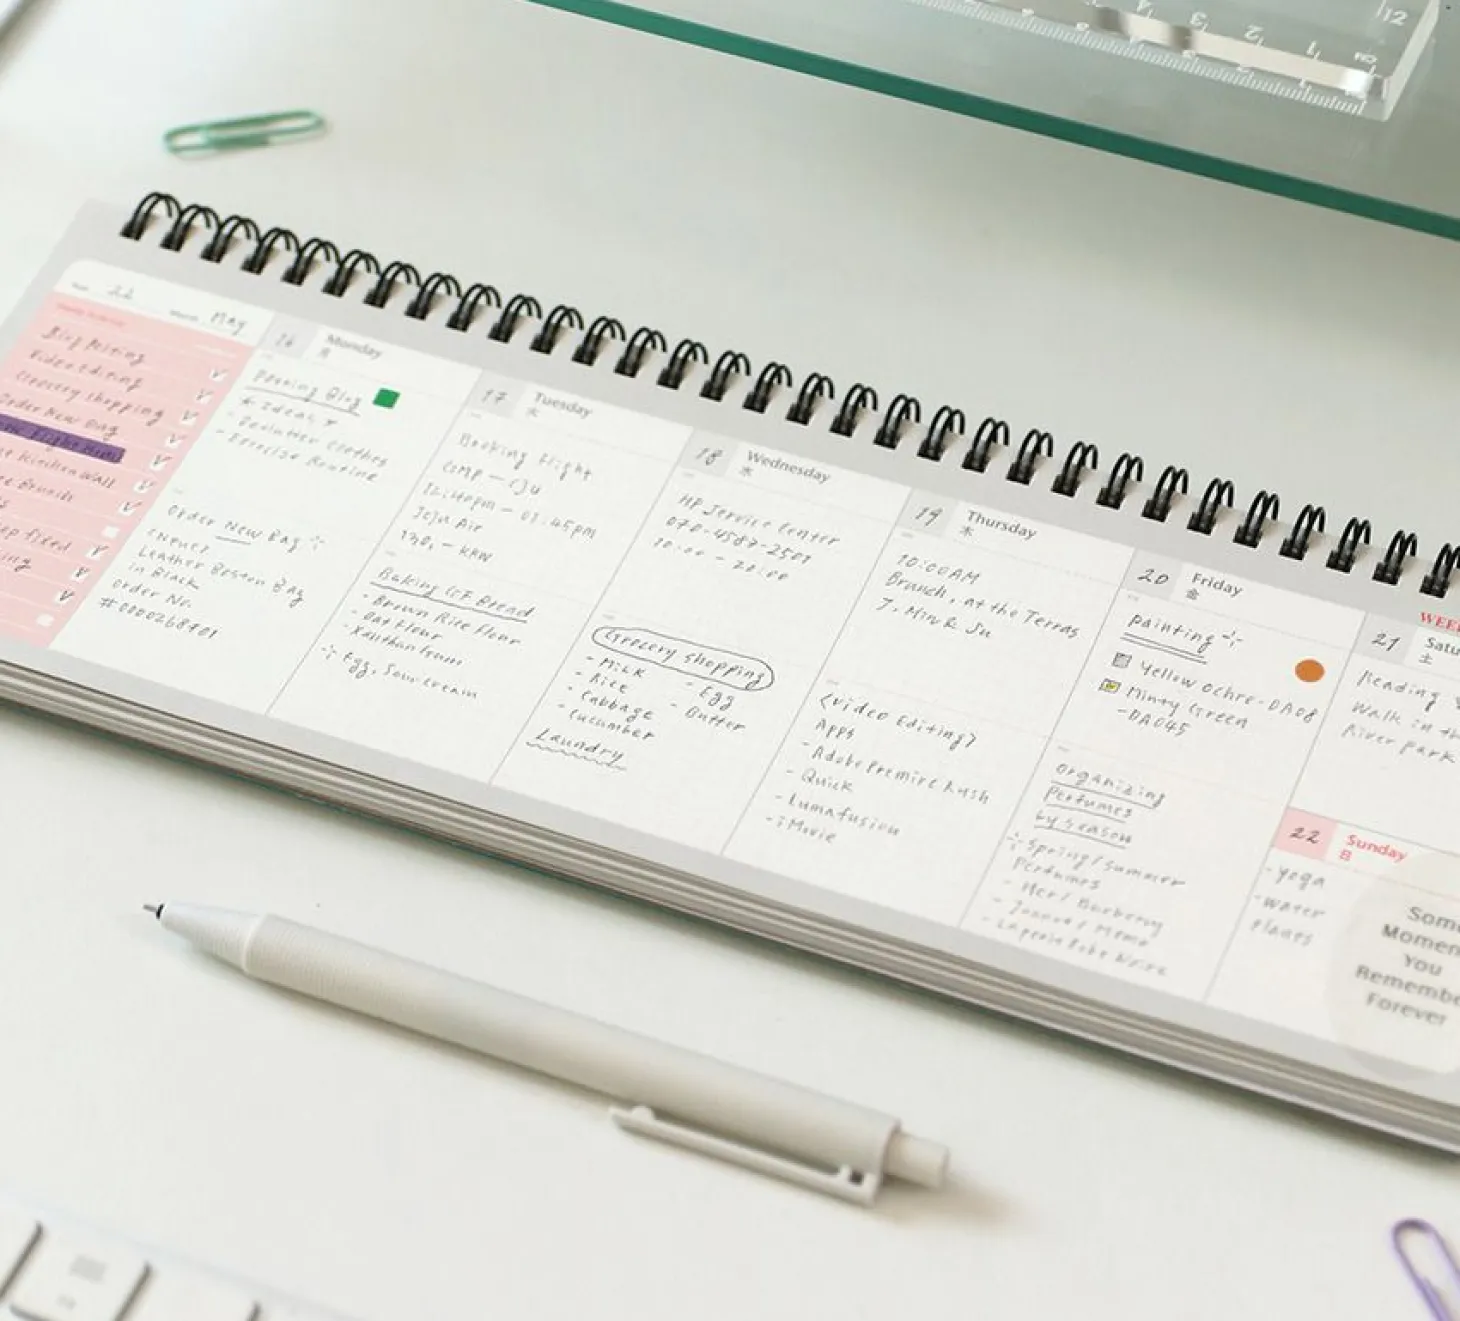 22
May
Blog Posting
Video Editing
Grocery shopping
Order New Bag
Kitchen Wall
Brunch
fixed
16
Monday
月
Posting Blog
* Ideas, *
- Declutter Clothes
- Exercise Routine
Order New Bag
Leather Boston Bag
in Black
Order No.
17
Tuesday
火
Booking Flight
GMP – CJU
Jeju Air
– KRW
Baking GF Bread
- Brown Rice Flour
- Oat Flour
- Xanthan Gum
Egg, Sour cream
18
Wednesday
水
HP Service Center
070-4587-2501
10:00 – 20:00
Grocery shopping
- Milk
- Egg
- Rice
- Butter
- Cabbage
- Cucumber
Laundry
19
Thursday
木
10:00AM
Brunch, at the Terras
J. Min & Su
<Video Editing>
Apps
- Adobe Premire Rush
- Quick
- Lumafusion
- iMovie
20
Friday
金
Painting
Yellow Ochre-DA08
Minty Green
-DA045
Organizing
Perfumes
by season
Spring/summer
Perfumes
- Her/Burberry
21
Satu
土
Reading
Walk in th
River park
22
Sunday
日
- yoga
- water
plants
Some
Momen
You
Remembe
Forever
12
1
2
3
4